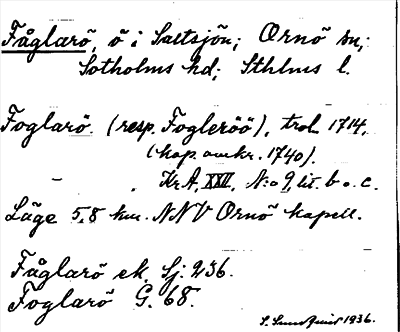 Fåglarö, ö i Saltsjön; Ornö sn;
Sotholms hd; Sthlms l.
Foglarö. (resp. Fogleröö), trol. 1714.
(kop. omkr. 1740).
Kr A, XXII, N:o 9, lit. b o. c.
Läge 5,8 km. NNV Ornö kapell.
Fåglarö ek. Sj. 236.
Foglarö G. 68.
S. Sundquist 1936.